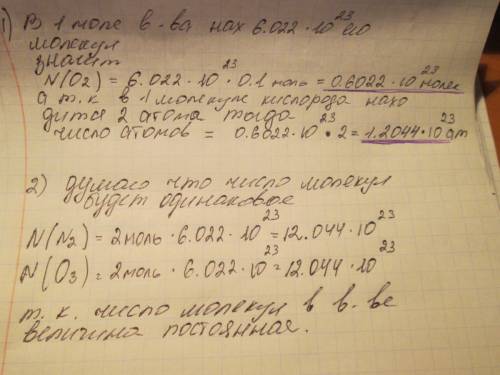 1) В 1 моле в-ва нах 6.022 · 10²³
молекул
значит
N(O₂) = 6.022 · 10²³ · 0.1 моль = 0.6022 · 10²³ молек
а т.к в 1 молекуле кислорода нахо
дится 2 атома тогда
число атомов = 0.6022 · 10²³ · 2 = 1.2044 · 10²³ ат
2) думаю что число молекул
будет одинаковое
N(N₂) = 2 моль · 6.022 · 10²³ = 12.044 · 10²³
N(O₃) = 2 моль · 6.022 · 10²³ = 12.044 · 10²³
т.к. число молекул в в-ве
величина постоянная.